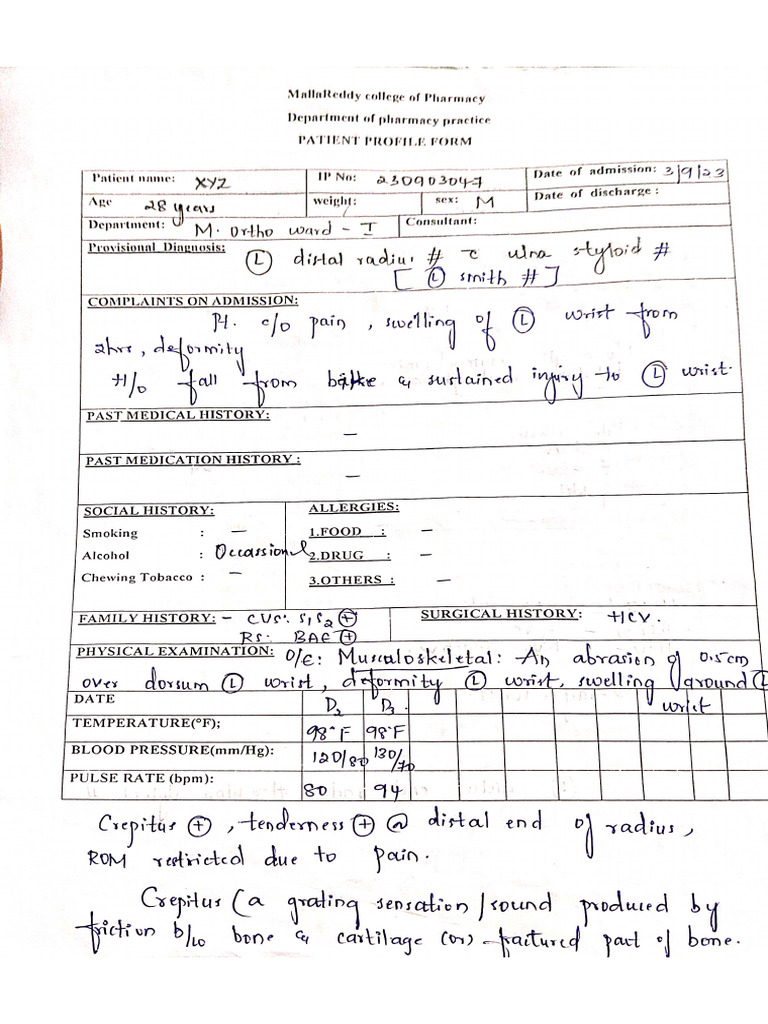 MallaReddy college of Pharmacy
Department of pharmacy practice
PATIENT PROFILE FORM
Patient name: XYZ IP No: 230903047 Date of admission: 3/9/23
Age 28 years weight: sex: M Date of discharge:
Department: M. Ortho ward - I Consultant:
Provisional Diagnosis: Ⓛ distal radius # c̄ ulna styloid #
[ Ⓛ smith # ]
COMPLAINTS ON ADMISSION:
Pt. c/o pain, swelling of Ⓛ wrist from
2hrs, deformity
H/o fall from bike & sustained injury to Ⓛ wrist.
PAST MEDICAL HISTORY:
—
PAST MEDICATION HISTORY :
—
SOCIAL HISTORY: ALLERGIES:
Smoking : — 1.FOOD : —
Alcohol : Occassional 2.DRUG : —
Chewing Tobacco : — 3.OTHERS : —
FAMILY HISTORY: - CVS: S1S2 ⊕ SURGICAL HISTORY:
RS: BAE ⊕
PHYSICAL EXAMINATION: O/E: Musculoskeletal: An abrasion of 0.5cm
over dorsum Ⓛ wrist, deformity Ⓛ wrist, swelling ground Ⓛ
wrist
DATE D2 D3.
TEMPERATURE(°F); 98°F 98°F
BLOOD PRESSURE(mm/Hg): 120/80 130/70
PULSE RATE (bpm): 80 94
Crepitus ⊕, tenderness ⊕ @ distal end of radius,
ROM restricted due to pain.
Crepitus (a grating sensation/sound produced by
friction b/w bone & cartilage (or) fractured part of bone.